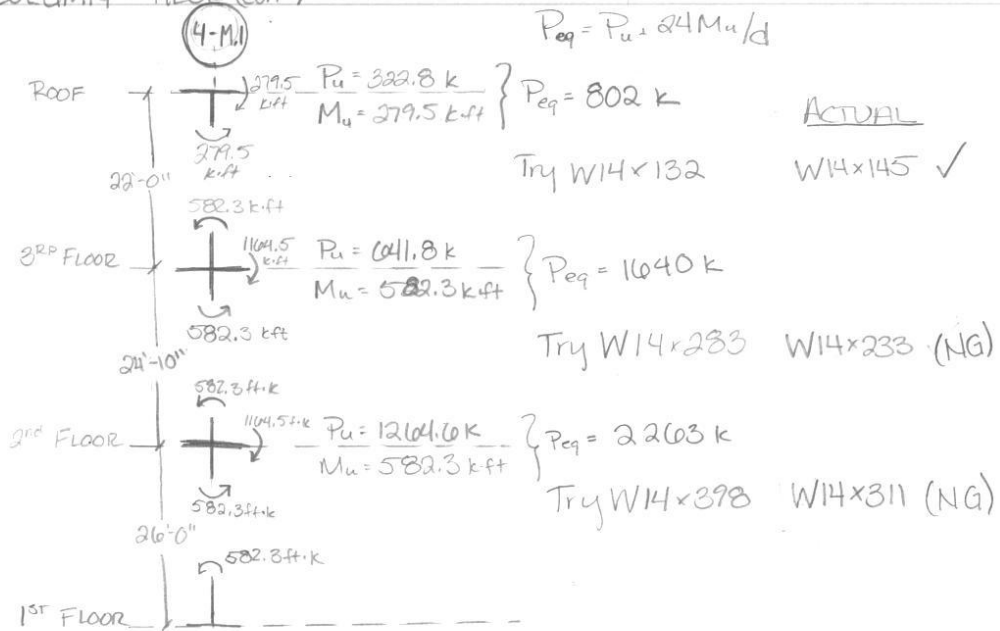 4-M.1
Peq = Pu + 24Mu/d
ROOF
279.5 k·ft
Pu = 322.8 k
Mu = 279.5 k·ft
Peq = 802 k
ACTUAL
279.5 k·ft
Try W14×132
W14×145 ✓
22'-0"
582.3 k·ft
3RD FLOOR
1164.5 k·ft
Pu = 641.8 k
Mu = 582.3 k·ft
Peq = 1640 k
582.3 kft
Try W14×283
W14×233 (NG)
24'-10"
582.3 ft·k
2nd FLOOR
1164.5 f·k
Pu = 1264.6 k
Mu = 582.3 k·ft
Peq = 2263 k
582.3 ft·k
Try W14×398
W14×311 (NG)
26'-0"
582.3 ft·k
1ST FLOOR